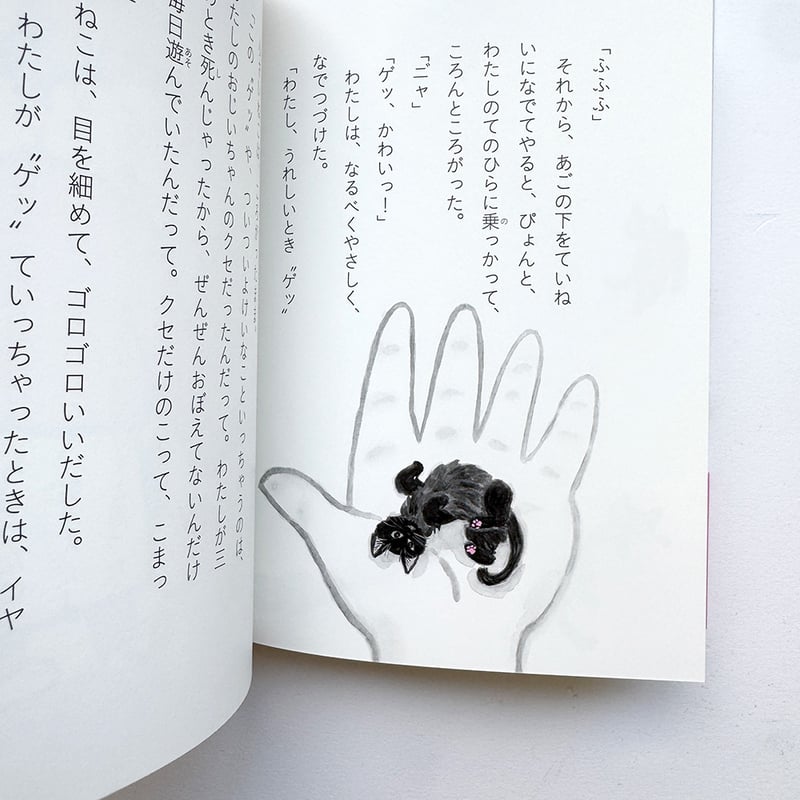 「ふふふ」
それから、あごの下をていね
いになでてやると、ぴょんと、
わたしのてのひらに乗っかって、
ころんところがった。
「ニャ」
「ゲッ、かわいっ！」
わたしは、なるべくやさしく、
なでつづけた。
「わたし、うれしいとき〝ゲッ〟
この〝ゲッ〟や、ついついよけいなこといっちゃうのは、
たしのおじいちゃんのクセだったんだって。わたしが三
とき死んじゃったから、ぜんぜんおぼえてないんだけ
毎日遊んでいたんだって。クセだけのこって、こまっ
ねこは、目を細めて、ゴロゴロいいだした。
わたしが〝ゲッ〟ていっちゃったときは、イヤ